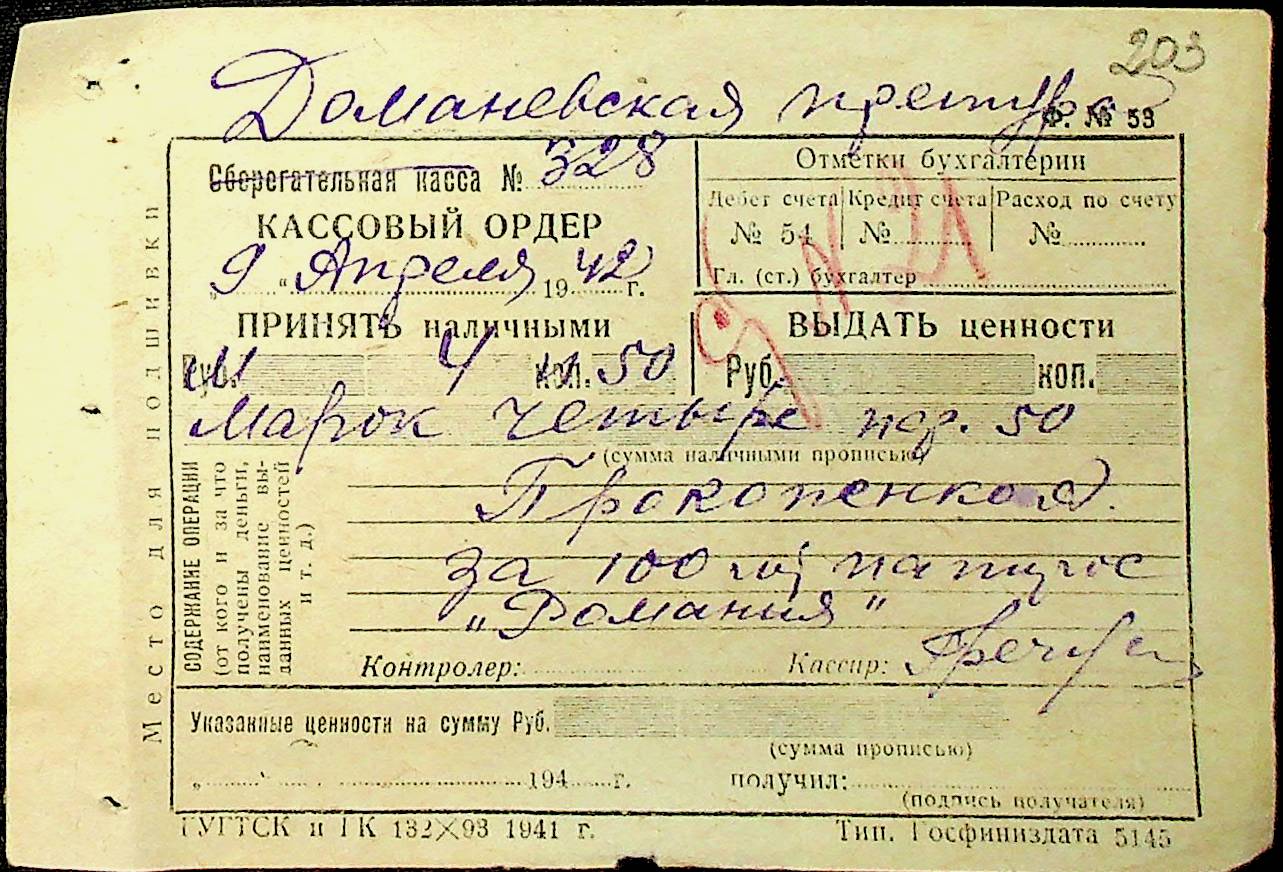 203
Доманевская претура
Ф. № 53
Сберегательная касса № 328
КАССОВЫЙ ОРДЕР
„ 9 “ Апреля 1942 г.
Отметки бухгалтерии
Дебет счета Кредит счета Расход по счету
№ 54 № №
Гл. (ст.) бухгалтер
ПРИНЯТЬ наличными
Руб. 4 коп. 50
ВЫДАТЬ ценности
Руб. коп.
Марок четыре пф. 50
(сумма наличными прописью)
Место для подшивки
СОДЕРЖАНИЕ ОПЕРАЦИИ
(от кого и за что
получены деньги,
наименование вы-
данных ценностей
и т. д.)
Прокопенко
за 100 папирос
„Романия“
Контролер: Кассир:
Указанные ценности на сумму Руб.
(сумма прописью)
„ “ 194 г. получил:
(подпись получателя)
ГУГТСК и ГК 132×93 1941 г. Тип. Госфиниздата 5145